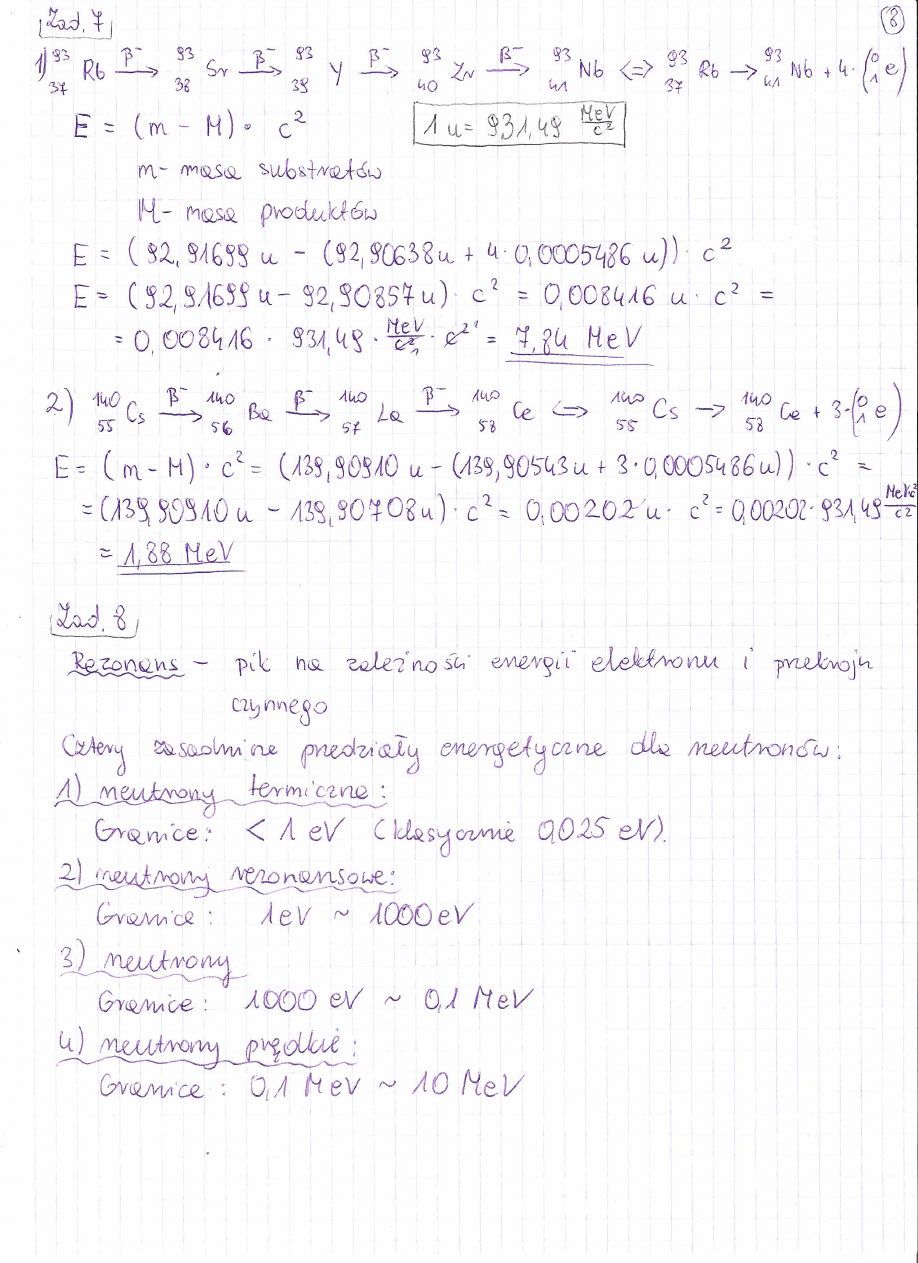 8
Zad. 7
1) ⁹³₃₇Rb —β⁻→ ⁹³₃₈Sr —β⁻→ ⁹³₃₉Y —β⁻→ ⁹³₄₀Zr —β⁻→ ⁹³₄₁Nb <=> ⁹³₃₇Rb → ⁹³₄₁Nb + 4·(⁰₁e)
E = (m - M) · c² 1 u = 931,49 MeV/c²
m - masa substratów
M - masa produktów
E = (92,91699 u - (92,90638u + 4·0,0005486 u)) · c²
E = (92,91699u - 92,90857u) · c² = 0,008416 u · c² =
= 0,008416 · 931,49 · MeV/c² · c² = 7,84 MeV
2) ¹⁴⁰₅₅Cs —β⁻→ ¹⁴⁰₅₆Ba —β⁻→ ¹⁴⁰₅₇La —β⁻→ ¹⁴⁰₅₈Ce <=> ¹⁴⁰₅₅Cs → ¹⁴⁰₅₈Ce + 3·(⁰₁e)
E = (m - M) · c² = (139,90910 u - (139,90543u + 3·0,0005486u)) · c² =
= (139,90910u - 139,90708u) · c² = 0,00202 u · c² = 0,00202·931,49 MeV·c²/c²
= 1,88 MeV
Zad. 8
Rezonans - pik na zależności energii elektronu i przekroju
czynnego
Cztery zasadnicze przedziały energetyczne dla neutronów:
1) neutrony termiczne:
Granice: < 1 eV (klasycznie 0,025 eV).
2) neutrony rezonansowe:
Granice: 1eV ~ 1000 eV
3) neutrony
Granice: 1000 eV ~ 0,1 MeV
4) neutrony prędkie:
Granice: 0,1 MeV ~ 10 MeV